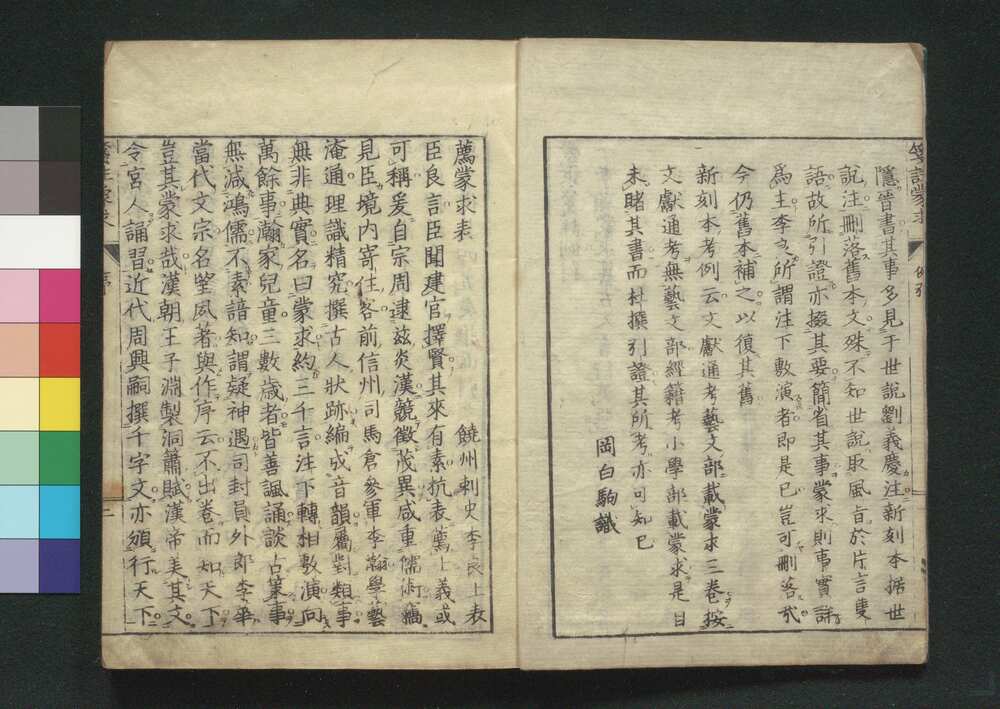 隱晉書其事多見于世說劉義慶注新刻本据世
說注刪落舊本文殊不知世說取風旨於片言隻
語故所引證亦掇其要簡省其事蒙求則事實詳
爲主李之所謂注下敷演者即是已豈可刪落乎
今仍舊本補之以復其舊
新刻本考例云文獻通考藝文部載蒙求三卷按
文獻通考無藝文部經籍考小學部載蒙求是目
未睹其書而杜撰引證其所考亦可知已
岡白駒識
薦蒙求表 饒州刺史李良上表
臣良言臣聞建官擇賢其來有素抗表薦士義或
可稱爰自宗周逮茲炎漢競徵茂異咸重儒術竊
見臣境內寄住客前信州司馬倉參軍李瀚學藝
淹通理識精究撰古人狀跡編成音韻屬對類事
無非典實名曰蒙求約三千言注下轉相敷演向
萬餘事瀚家兒童三數歲者皆善諷誦談古策事
無減鴻儒不素諳知謂疑神遇司封員外郎李華
當代文宗名望夙著與作序云不出卷而知天下
豈其蒙求哉漢朝王子淵製洞簫賦漢帝美其文
令宮人誦習近代周興嗣撰千字文亦頒行天下